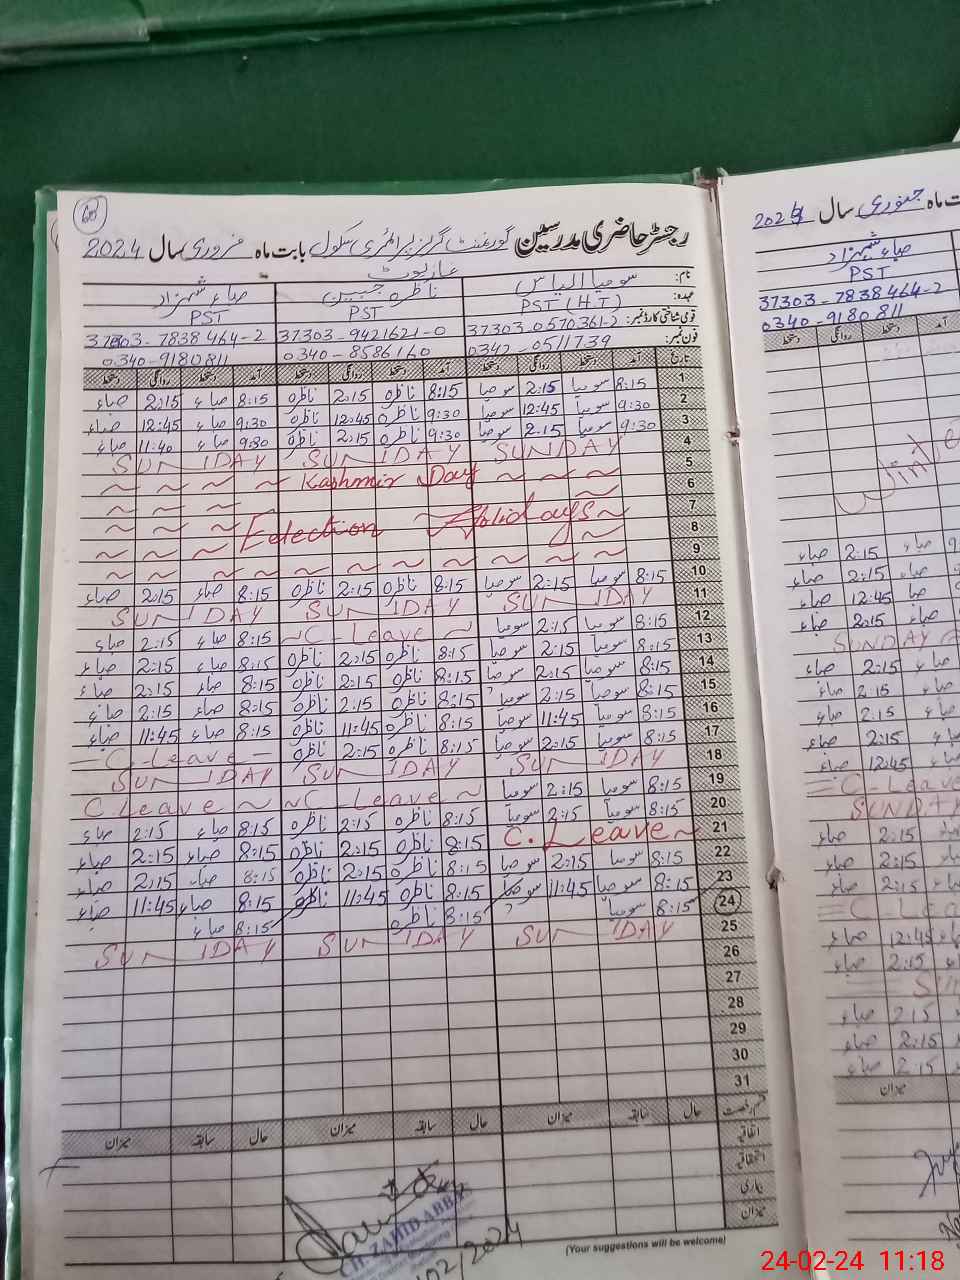 60
رجسٹر حاضری مدرسین گورنمنٹ گرلز پرائمری سکول بابت ماہ فروری سال 2024
نام: سومیا الیاس ناظرہ جبین صباء شہزاد
عہدہ: PST (H.T) PST PST
قومی شناختی کارڈ نمبر: 37303-0570361-2 37303-9421621-0 37303-7838464-2
فون نمبر: 0342-0511739 0340-8586160 0340-9180811
تاریخ آمد دستخط روانگی دستخط آمد دستخط روانگی دستخط آمد دستخط روانگی دستخط
1 8:15 سومیا 2:15 سومیا 8:15 ناظرہ 2:15 ناظرہ 8:15 صباء 2:15 صباء
2 9:30 سومیا 12:45 سومیا 9:30 ناظرہ 12:45 ناظرہ 9:30 صباء 12:45 صباء
3 9:30 سومیا 2:15 سومیا 9:30 ناظرہ 2:15 ناظرہ 9:30 صباء 11:40 صباء
4 SUNDAY SUNDAY SUNDAY
5 Kashmir Day
6
7 Election Holidays
8
9
10 8:15 سومیا 2:15 سومیا 8:15 ناظرہ 2:15 ناظرہ 8:15 صباء 2:15 صباء
11 SUNDAY SUNDAY SUNDAY
12 8:15 سومیا 2:15 سومیا C-Leave 8:15 صباء 2:15 صباء
13 8:15 سومیا 2:15 سومیا 8:15 ناظرہ 2:15 ناظرہ 8:15 صباء 2:15 صباء
14 8:15 سومیا 2:15 سومیا 8:15 ناظرہ 2:15 ناظرہ 8:15 صباء 2:15 صباء
15 8:15 سومیا 2:15 سومیا 8:15 ناظرہ 2:15 ناظرہ 8:15 صباء 2:15 صباء
16 8:15 سومیا 11:45 سومیا 8:15 ناظرہ 11:45 ناظرہ 8:15 صباء 11:45 صباء
17 8:15 سومیا 2:15 سومیا 8:15 ناظرہ 2:15 ناظرہ C-Leave
18 SUNDAY SUNDAY SUNDAY
19 8:15 سومیا 2:15 سومیا C-Leave C Leave
20 8:15 سومیا 2:15 سومیا 8:15 ناظرہ 2:15 ناظرہ 8:15 صباء 2:15 صباء
21 C. Leave 8:15 ناظرہ 2:15 ناظرہ 8:15 صباء 2:15 صباء
22 8:15 سومیا 2:15 سومیا 8:15 ناظرہ 2:15 ناظرہ 8:15 صباء 2:15 صباء
23 8:15 سومیا 11:45 سومیا 8:15 ناظرہ 11:45 ناظرہ 8:15 صباء 11:45 صباء
24 8:15 سومیا 8:15 ناظرہ 8:15 صباء
25 SUNDAY SUNDAY SUNDAY
26
27
28
29
30
31
قسم رخصت حال سابقہ میزان حال سابقہ میزان حال سابقہ میزان
اتفاقیہ
استحقاقیہ
بیماری
میزان
CH. ZAHID ABBAS
02/2024
(Your suggestions will be welcome)
بابت ماہ جنوری سال 2024
صباء شہزاد
PST
37303-7838464-2
0340-9180811
آمد دستخط روانگی دستخط
صباء 2:15 صباء
صباء 2:15 صباء
صبا 12:45 صباء
صباء 2:15 صباء
SUNDAY
صباء 2:15 صباء
صباء 2:15 صباء
صباء 2:15 صباء
صباء 2:15 صباء
صباء 12:45 صباء
C-Leave
SUNDAY
2:15 صباء
2:15 صباء
2:15 صباء
C-Lea
12:45 صباء
2:15 صباء
2:15 صباء
2:15 صباء
2:15 صباء
میزان
24-02-24 11:18